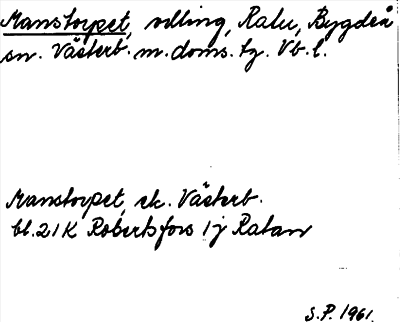 Manstorpet, odling, Ratu, Bygdeå
sn. Västerb. m. doms. tg. Vb. l.
Manstorpet, ek. Västerb.
bl. 21K Robertsfors 1j Ratan
S.P. 1961.